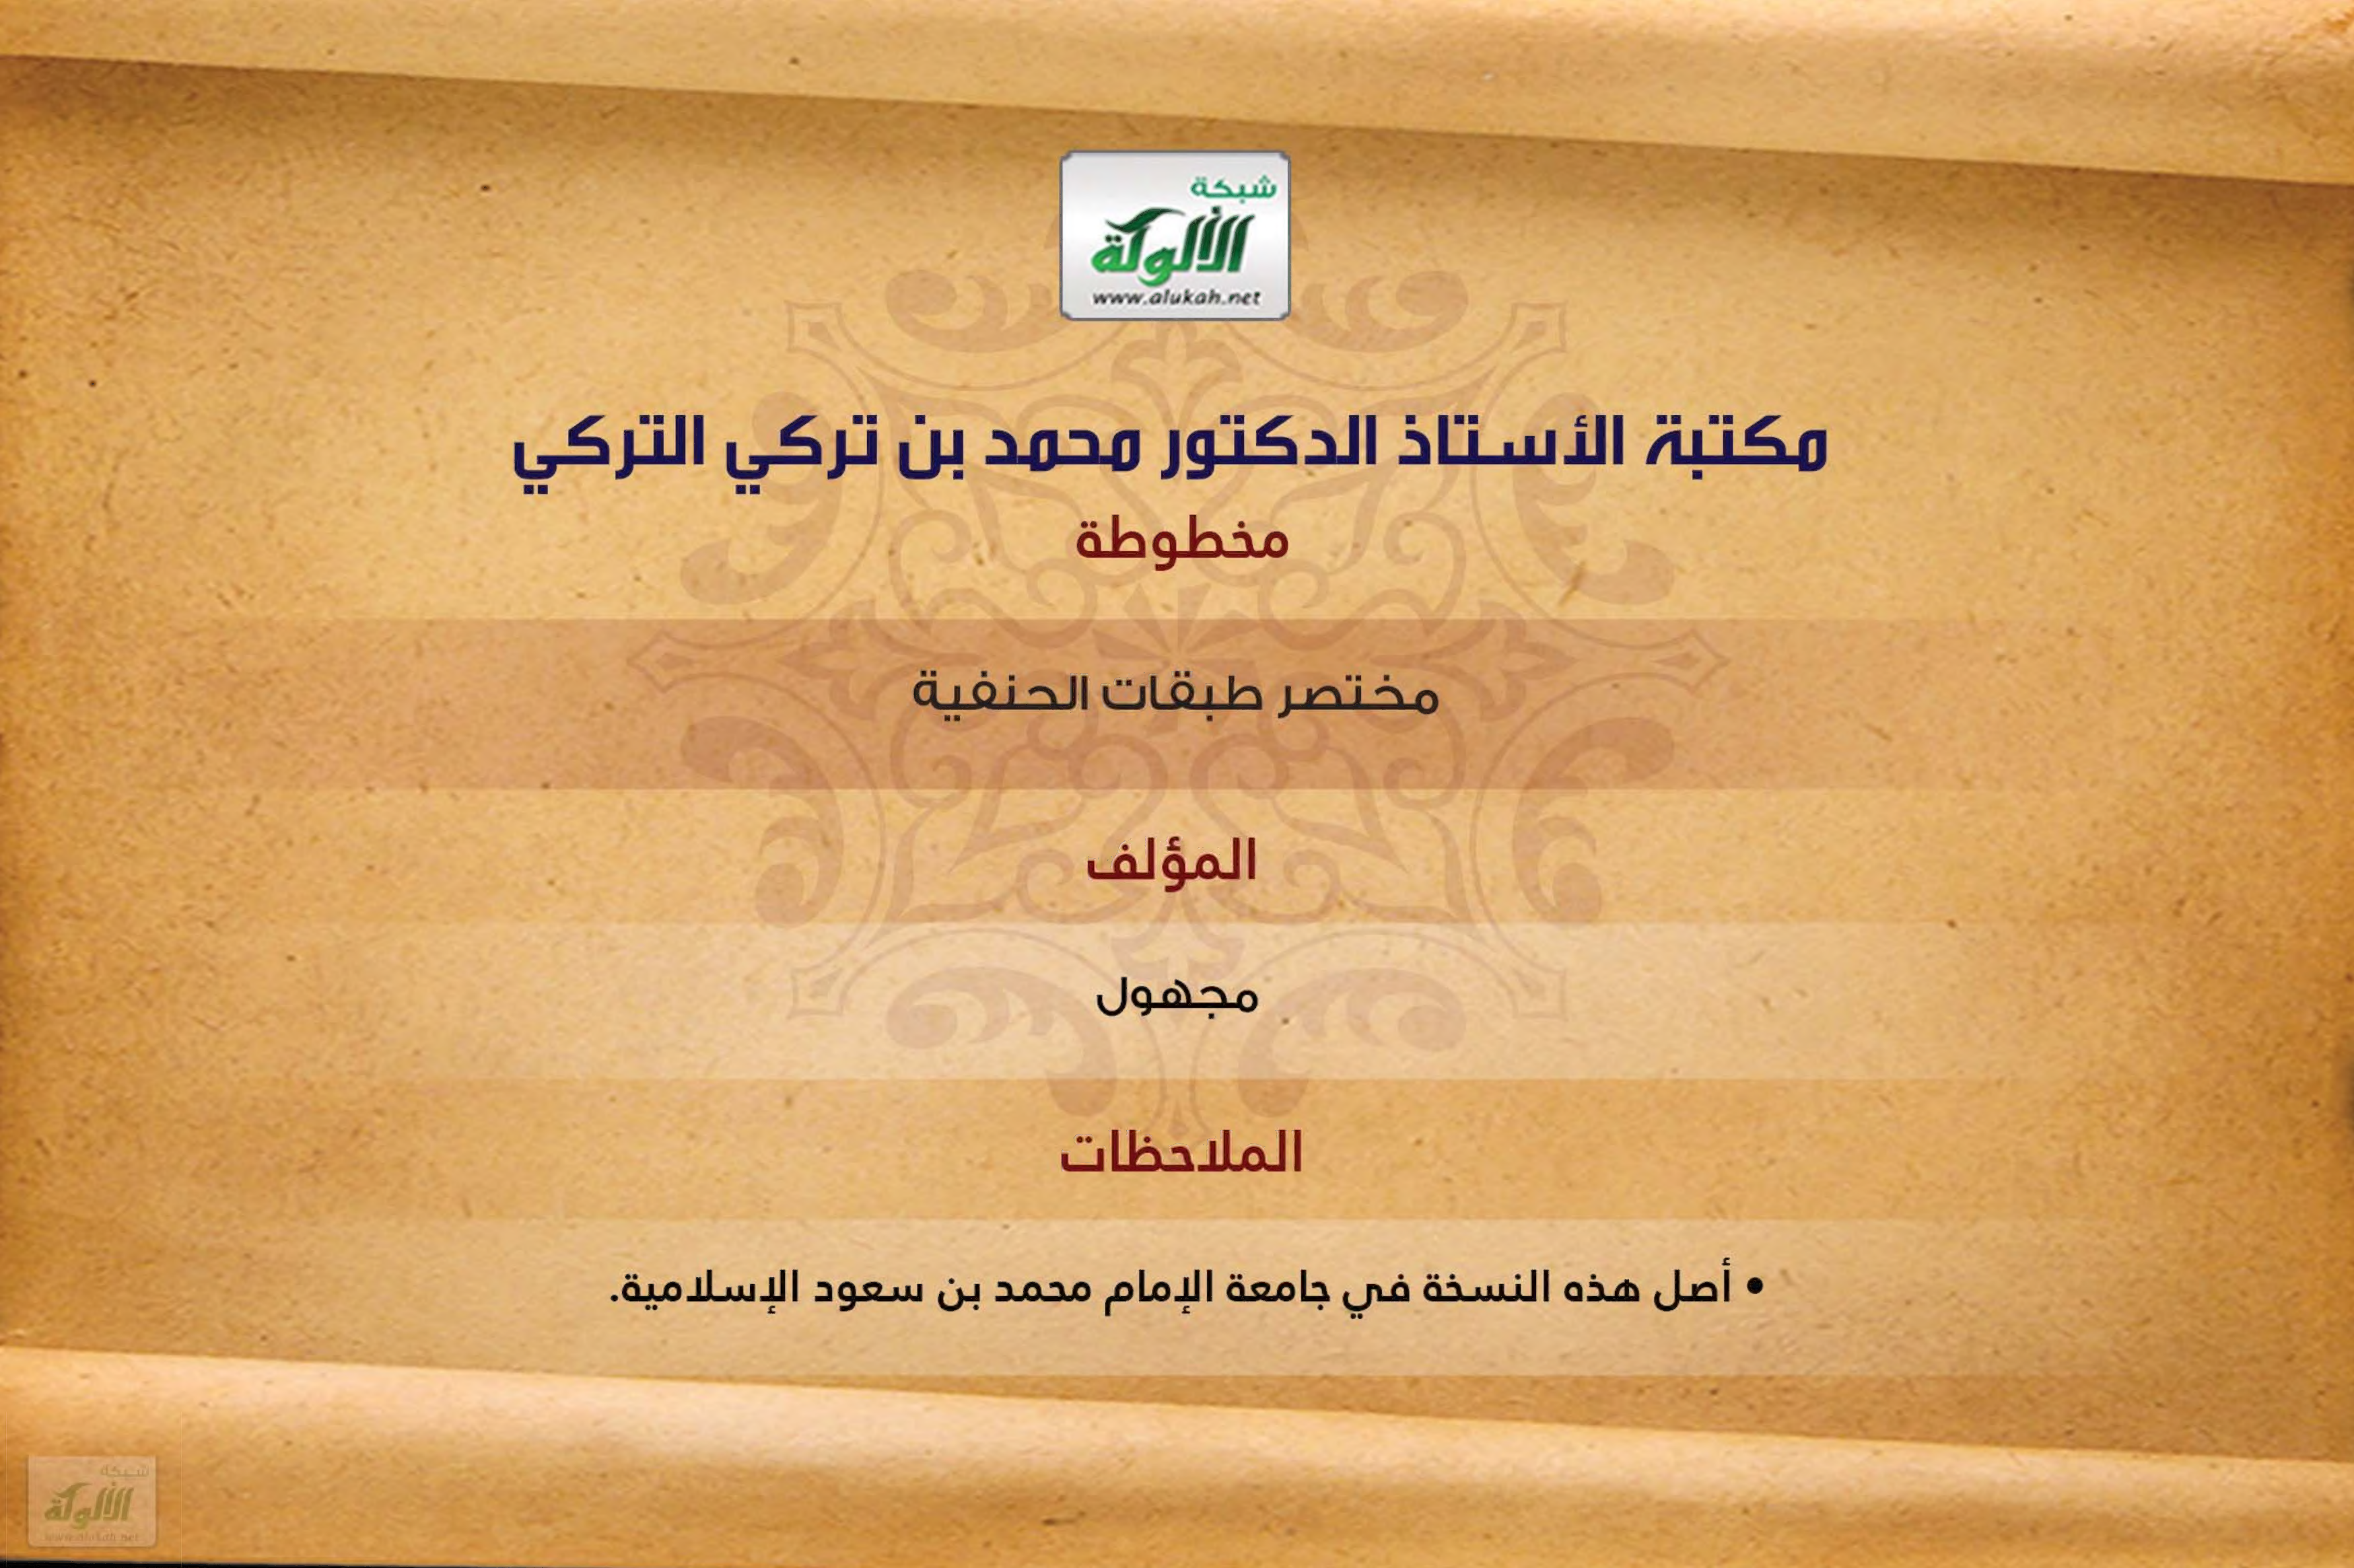 شبكة
الألوكة
www.alukah.net
مكتبة الأستاذ الدكتور محمد بن تركي التركي
مخطوطة
مختصر طبقات الحنفية
المؤلف
مجهول
الملاحظات
• أصل هذه النسخة في جامعة الإمام محمد بن سعود الإسلامية.
شبكة
الألوكة
www.alukah.net